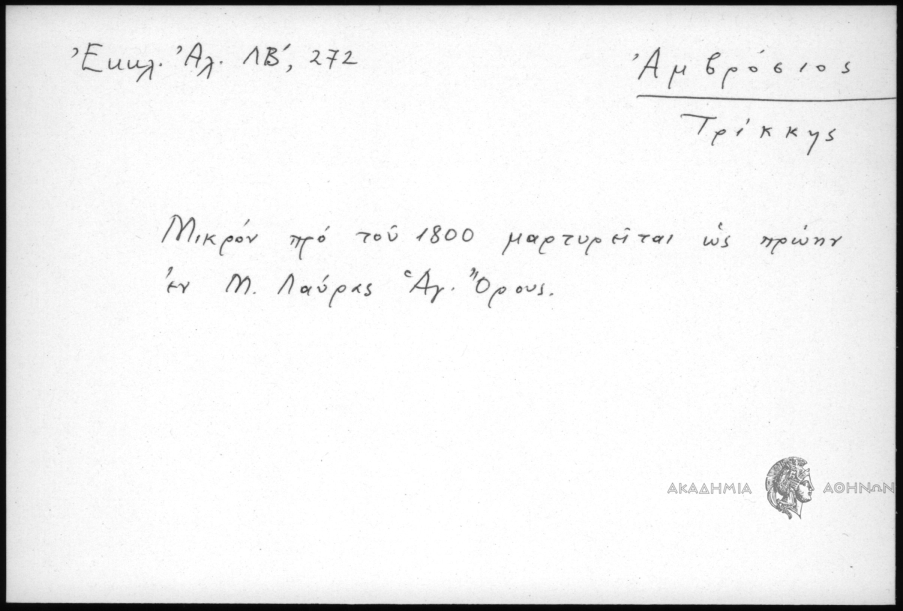 Ἐκκλ. Ἀλ. ΛΒ', 272
Ἀμβρόσιος
Τρίκκης
Μικρόν πρό τοῦ 1800 μαρτυρεῖται ὡς πρώην
ἐν Μ. Λαύρας Ἁγ. Ὄρους.
ΑΚΑΔΗΜΙΑ ΑΘΗΝΩΝ